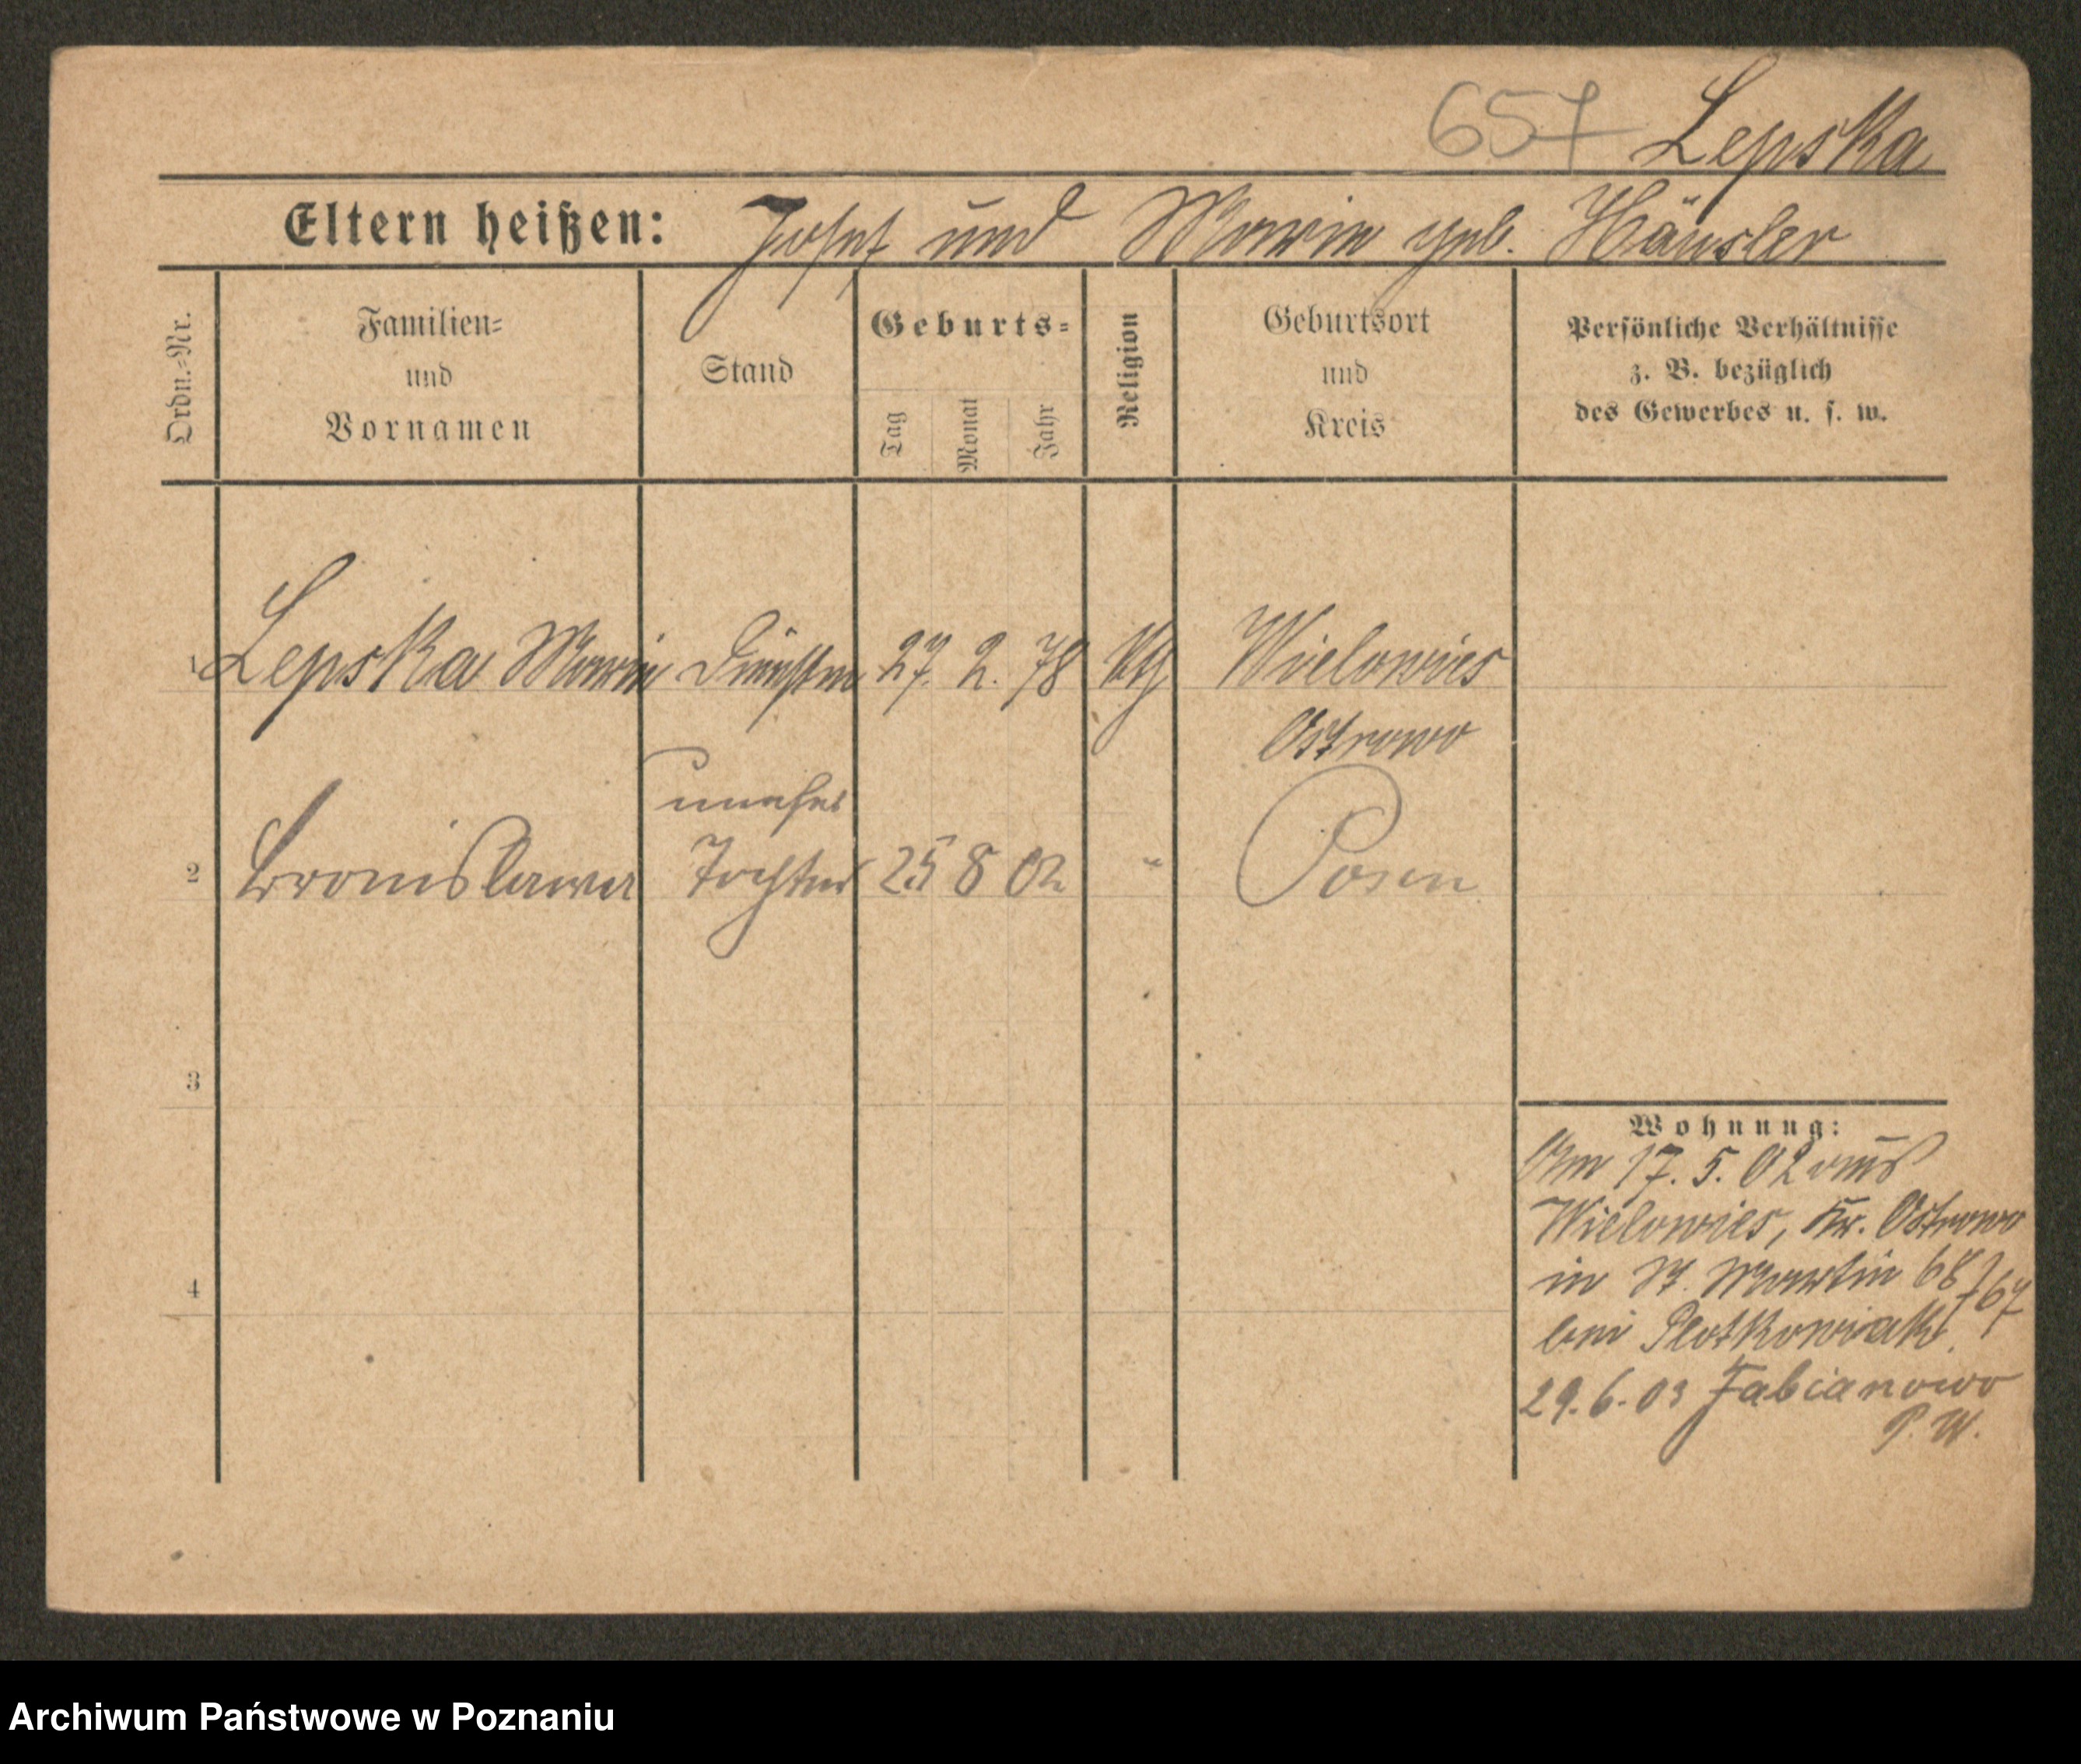 657 Lepska
Eltern heißen: Josef und Marie geb. Häusler
Ordn.-Nr.
Familien-
und
Vornamen
Stand
Geburts-
Tag
Monat
Jahr
Religion
Geburtsort
und
Kreis
Persönliche Verhältnisse
z. B. bezüglich
des Gewerbes u. s. w.
1 Lepska Marie 27. 2. 78 Wielowies
Ostrowo
unehel
2 Bronislawa Tochter 25 8 02 " Posen
3
4
Wohnung:
Am 17. 5. 02 aus
Wielowies, Kr. Ostrowo
in St. Martin 68/67
bei Plotkowiak.
29. 6. 03 Fabianowo
P. W.
Archiwum Państwowe w Poznaniu